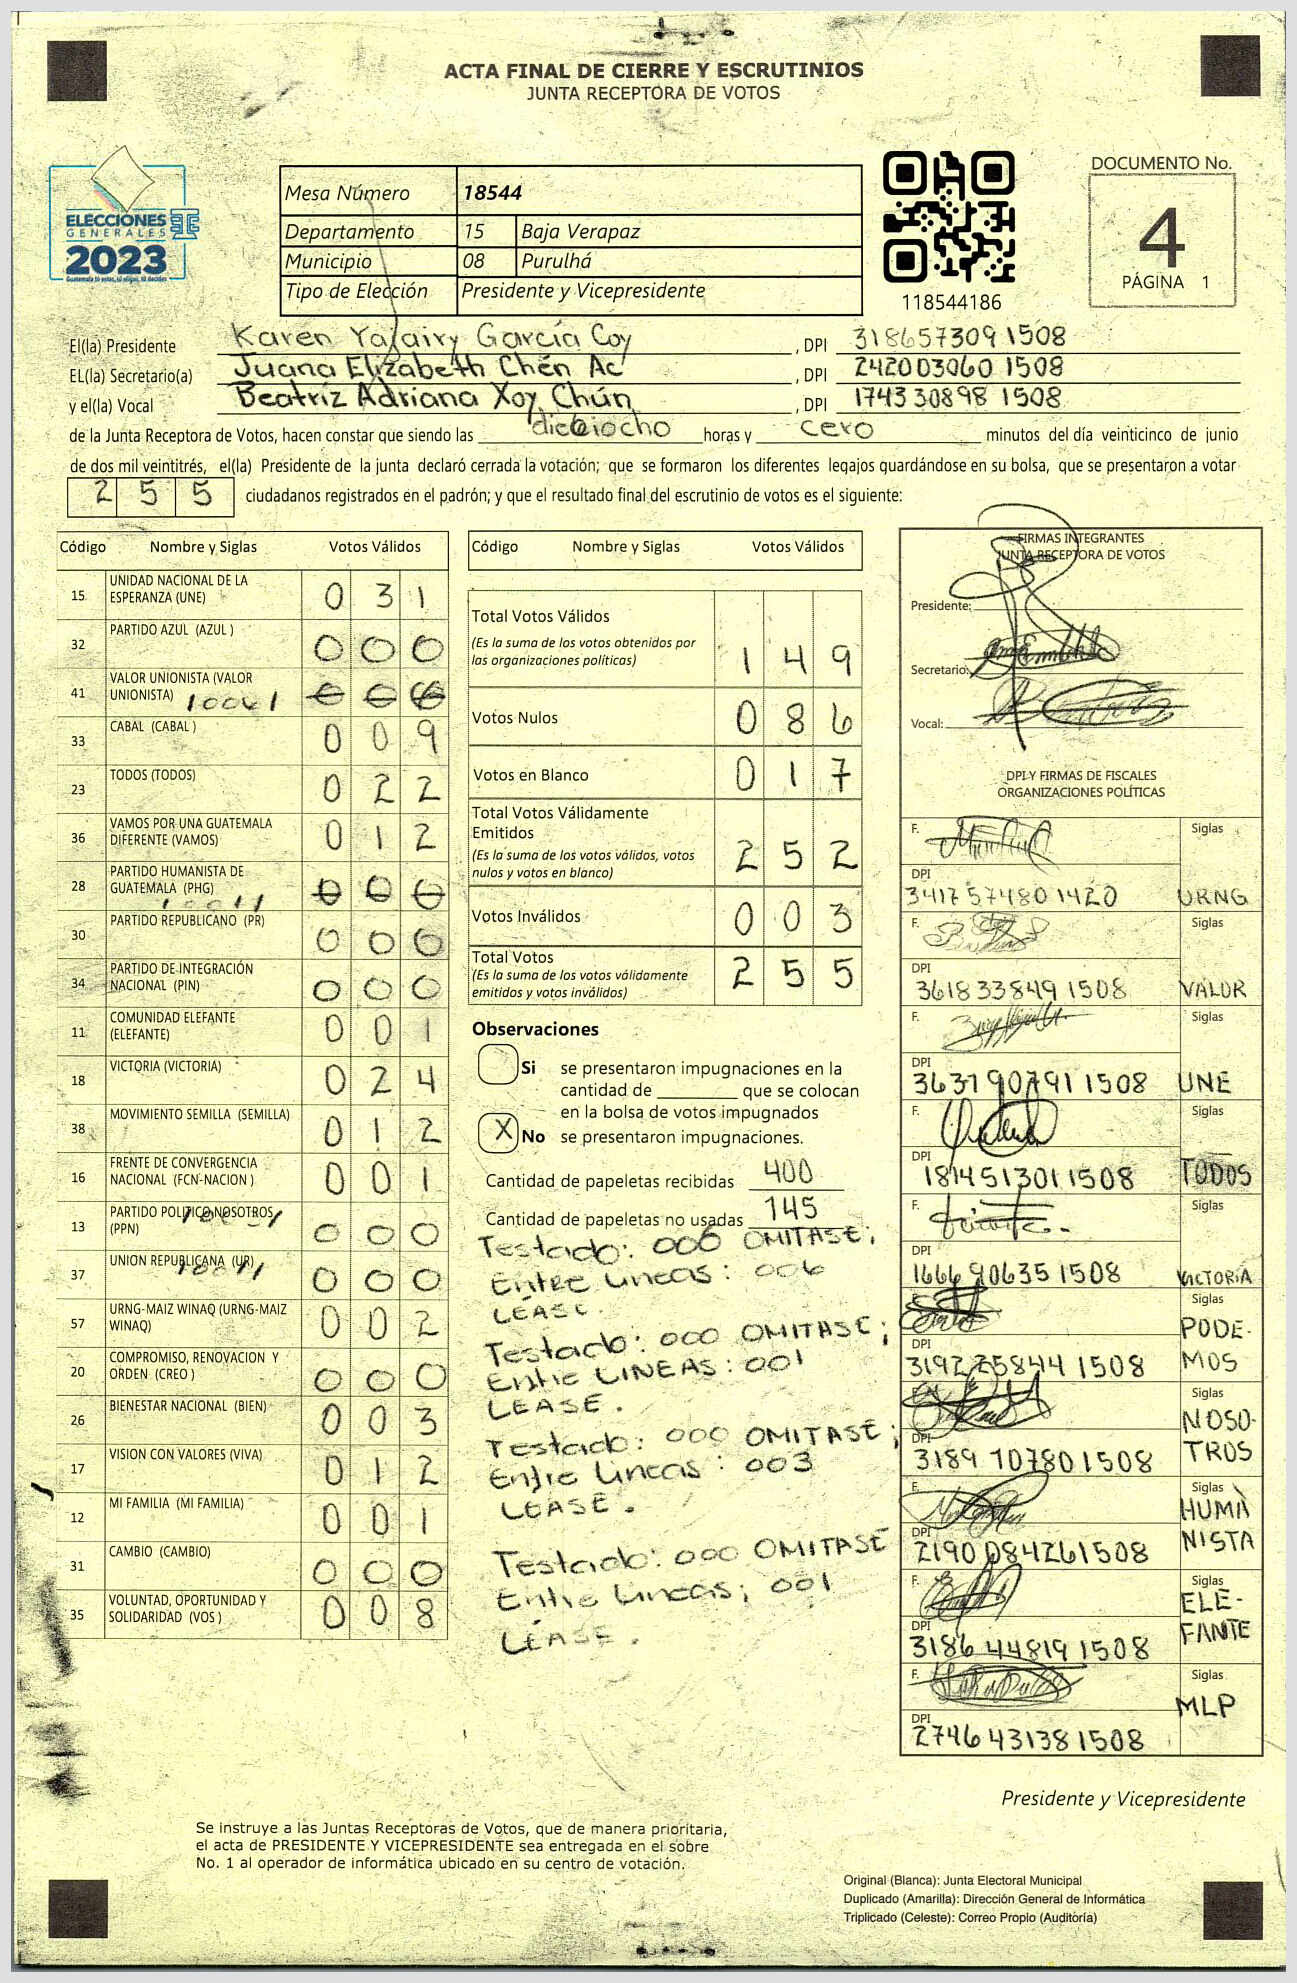 ACTA FINAL DE CIERRE Y ESCRUTINIOS
JUNTA RECEPTORA DE VOTOS
ELECCIONES
GENERALES
2023
Mesa Número 18544
Departamento 15 Baja Verapaz
Municipio 08 Purulhá
Tipo de Elección Presidente y Vicepresidente
118544186
DOCUMENTO No.
4
PÁGINA 1
El(la) Presidente Karen Yajairy García Coy , DPI 318657309 1508
EL(la) Secretario(a) Juana Elizabeth Chén Ac , DPI 242003060 1508
y el(la) Vocal Beatríz Adriana Xoy Chún , DPI 174330898 1508
de la Junta Receptora de Votos, hacen constar que siendo las dieciocho horas y cero minutos del día veinticinco de junio
de dos mil veintitrés, el(la) Presidente de la junta declaró cerrada la votación; que se formaron los diferentes legajos guardándose en su bolsa, que se presentaron a votar
255 ciudadanos registrados en el padrón; y que el resultado final del escrutinio de votos es el siguiente:
Código Nombre y Siglas Votos Válidos
15 UNIDAD NACIONAL DE LA ESPERANZA (UNE) 031
32 PARTIDO AZUL (AZUL ) 000
41 VALOR UNIONISTA (VALOR UNIONISTA)
33 CABAL (CABAL ) 009
23 TODOS (TODOS) 022
36 VAMOS POR UNA GUATEMALA DIFERENTE (VAMOS) 012
28 PARTIDO HUMANISTA DE GUATEMALA (PHG) 000
30 PARTIDO REPUBLICANO (PR) 000
34 PARTIDO DE INTEGRACIÓN NACIONAL (PIN) 000
11 COMUNIDAD ELEFANTE (ELEFANTE) 001
18 VICTORIA (VICTORIA) 024
38 MOVIMIENTO SEMILLA (SEMILLA) 012
16 FRENTE DE CONVERGENCIA NACIONAL (FCN-NACION ) 001
13 PARTIDO POLITICO NOSOTROS (PPN) 000
37 UNION REPUBLICANA (UR) 000
57 URNG-MAIZ WINAQ (URNG-MAIZ WINAQ) 002
20 COMPROMISO, RENOVACION Y ORDEN (CREO ) 000
26 BIENESTAR NACIONAL (BIEN) 003
17 VISION CON VALORES (VIVA) 012
12 MI FAMILIA (MI FAMILIA) 001
31 CAMBIO (CAMBIO) 000
35 VOLUNTAD, OPORTUNIDAD Y SOLIDARIDAD (VOS ) 008
Código Nombre y Siglas Votos Válidos
Total Votos Válidos
(Es la suma de los votos obtenidos por
las organizaciones políticas) 149
Votos Nulos 086
Votos en Blanco 017
Total Votos Válidamente
Emitidos
(Es la suma de los votos válidos, votos
nulos y votos en blanco) 252
Votos Inválidos 003
Total Votos
(Es la suma de los votos válidamente
emitidos y votos inválidos) 255
Observaciones
Si se presentaron impugnaciones en la
cantidad de ________ que se colocan
en la bolsa de votos impugnados
X No se presentaron impugnaciones.
Cantidad de papeletas recibidas 400
Cantidad de papeletas no usadas 145
Testado: 006 OMITASE;
Entre Lineas: 006
LÉASE.
Testado: 000 OMITASE;
Entre LINEAS: 001
LEASE.
Testado: 000 OMITASE;
Entre Lineas: 003
LEASE.
Testado: 000 OMITASE
Entre Lineas; 001
LEASE.
FIRMAS INTEGRANTES
JUNTA RECEPTORA DE VOTOS
Presidente:
Secretario:
Vocal:
DPI Y FIRMAS DE FISCALES
ORGANIZACIONES POLÍTICAS
F. Siglas
DPI
3417574801420 URNG
F. Siglas
DPI
361833849 1508 VALOR
F. Siglas
DPI
363790791 1508 UNE
F. Siglas
DPI
1814513011508 TODOS
F. Siglas
DPI
166690635 1508 VICTORIA
Siglas
DPI
319225844 1508 PODEMOS
Siglas
DPI
3189107801508 NOSOTROS
F. Siglas
DPI
2190084261508 HUMANISTA
F. Siglas
DPI
3186448191508 ELEFANTE
F. Siglas
DPI
2746431381508 MLP
Presidente y Vicepresidente
Se instruye a las Juntas Receptoras de Votos, que de manera prioritaria,
el acta de PRESIDENTE Y VICEPRESIDENTE sea entregada en el sobre
No. 1 al operador de informática ubicado en su centro de votación.
Original (Blanca): Junta Electoral Municipal
Duplicado (Amarilla): Dirección General de Informática
Triplicado (Celeste): Correo Propio (Auditoría)